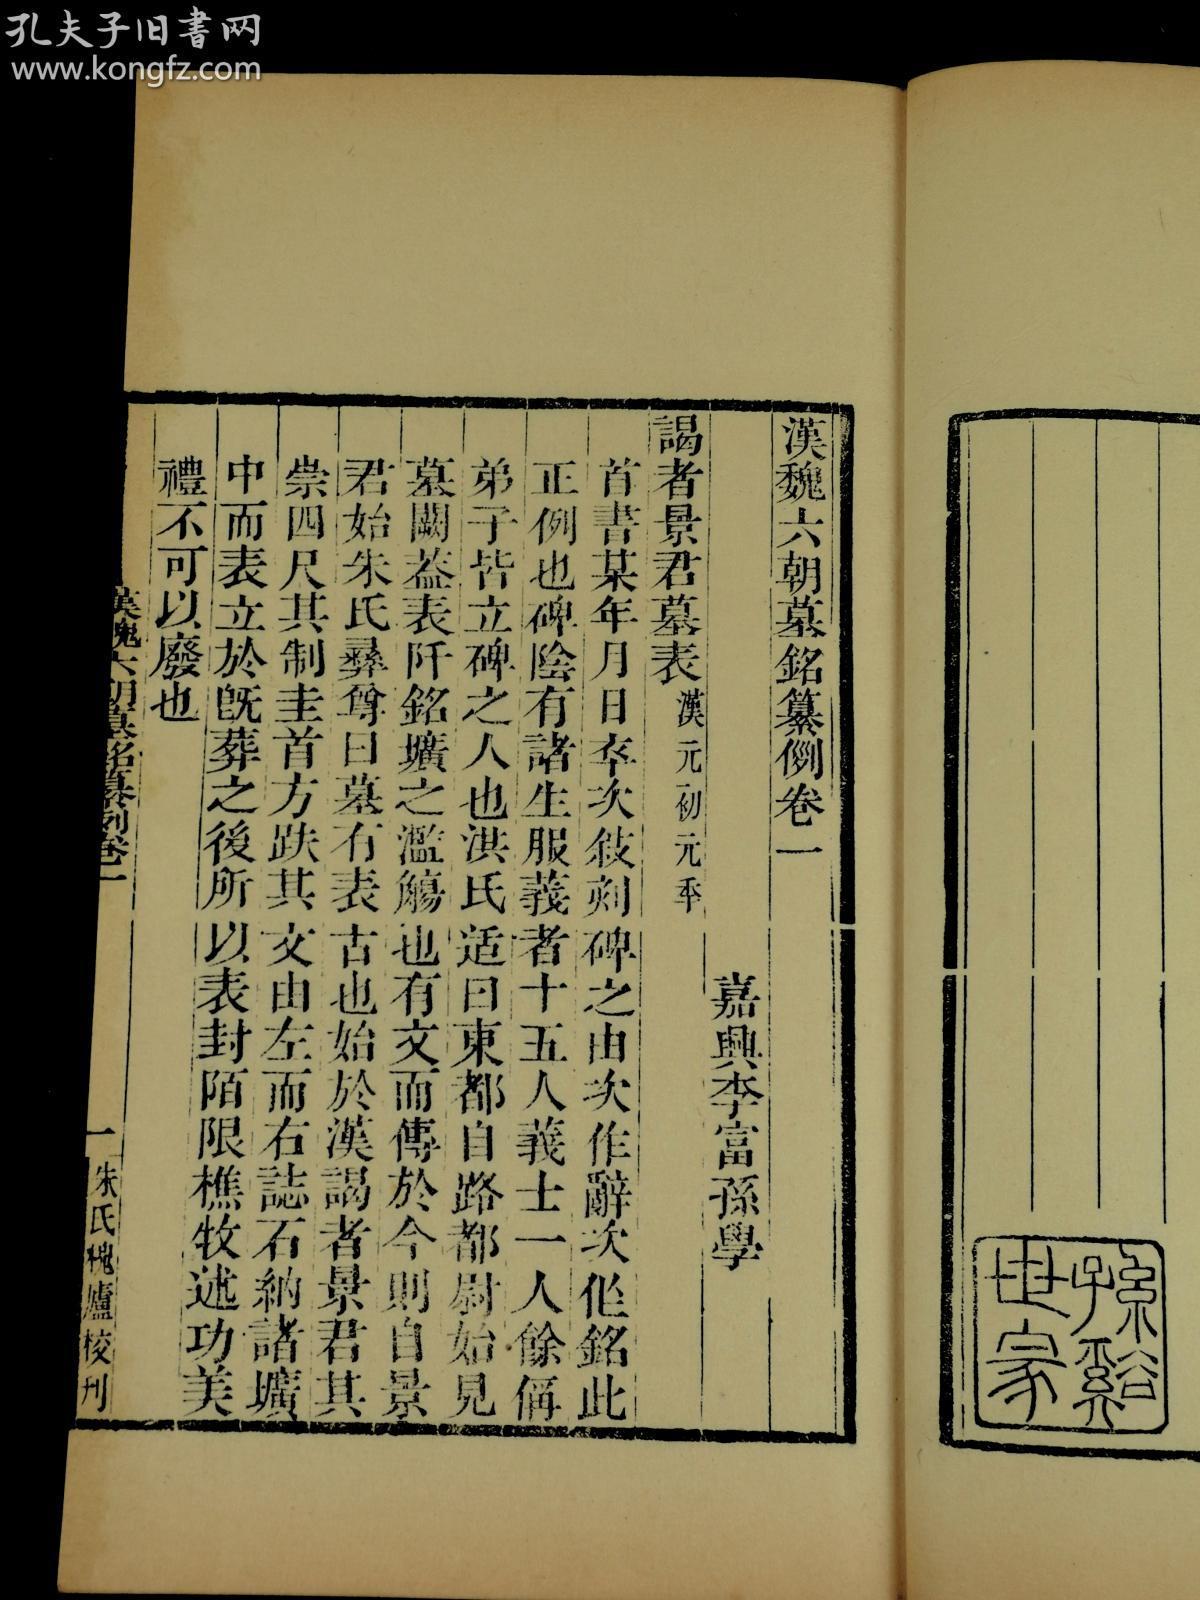 孔夫子旧書网
www.kongfz.com
漢魏六朝墓銘纂例卷一
嘉興李富孫學
謁者景君墓表 漢元初元年
首書某年月日卒次敍刻碑之由次作辭次作銘此
正例也碑陰有諸生服義者十五人義士一人餘偁
弟子皆立碑之人也洪氏适曰東都自路都尉始見
墓闕葢表阡銘壙之濫觴也有文而傳於今則自景
君始朱氏彝尊曰墓有表古也始於漢謁者景君其
崇四尺其制圭首方趺其文由左而右誌石納諸壙
中而表立於既葬之後所以表封陌限樵牧述功美
禮不可以廢也
漢魏六朝墓銘纂例卷一
一
朱氏槐廬校刊
孫谿
世家